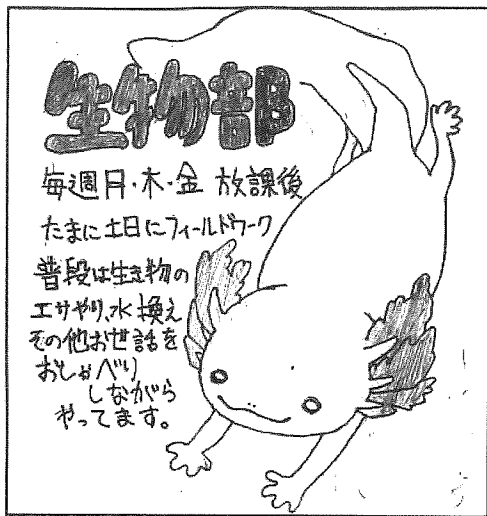 生物部
毎週月・木・金 放課後
たまに土日にフィールドワーク
普段は生き物の
エサやり、水換え
その他お世話を
おしゃべり
しながら
やってます。